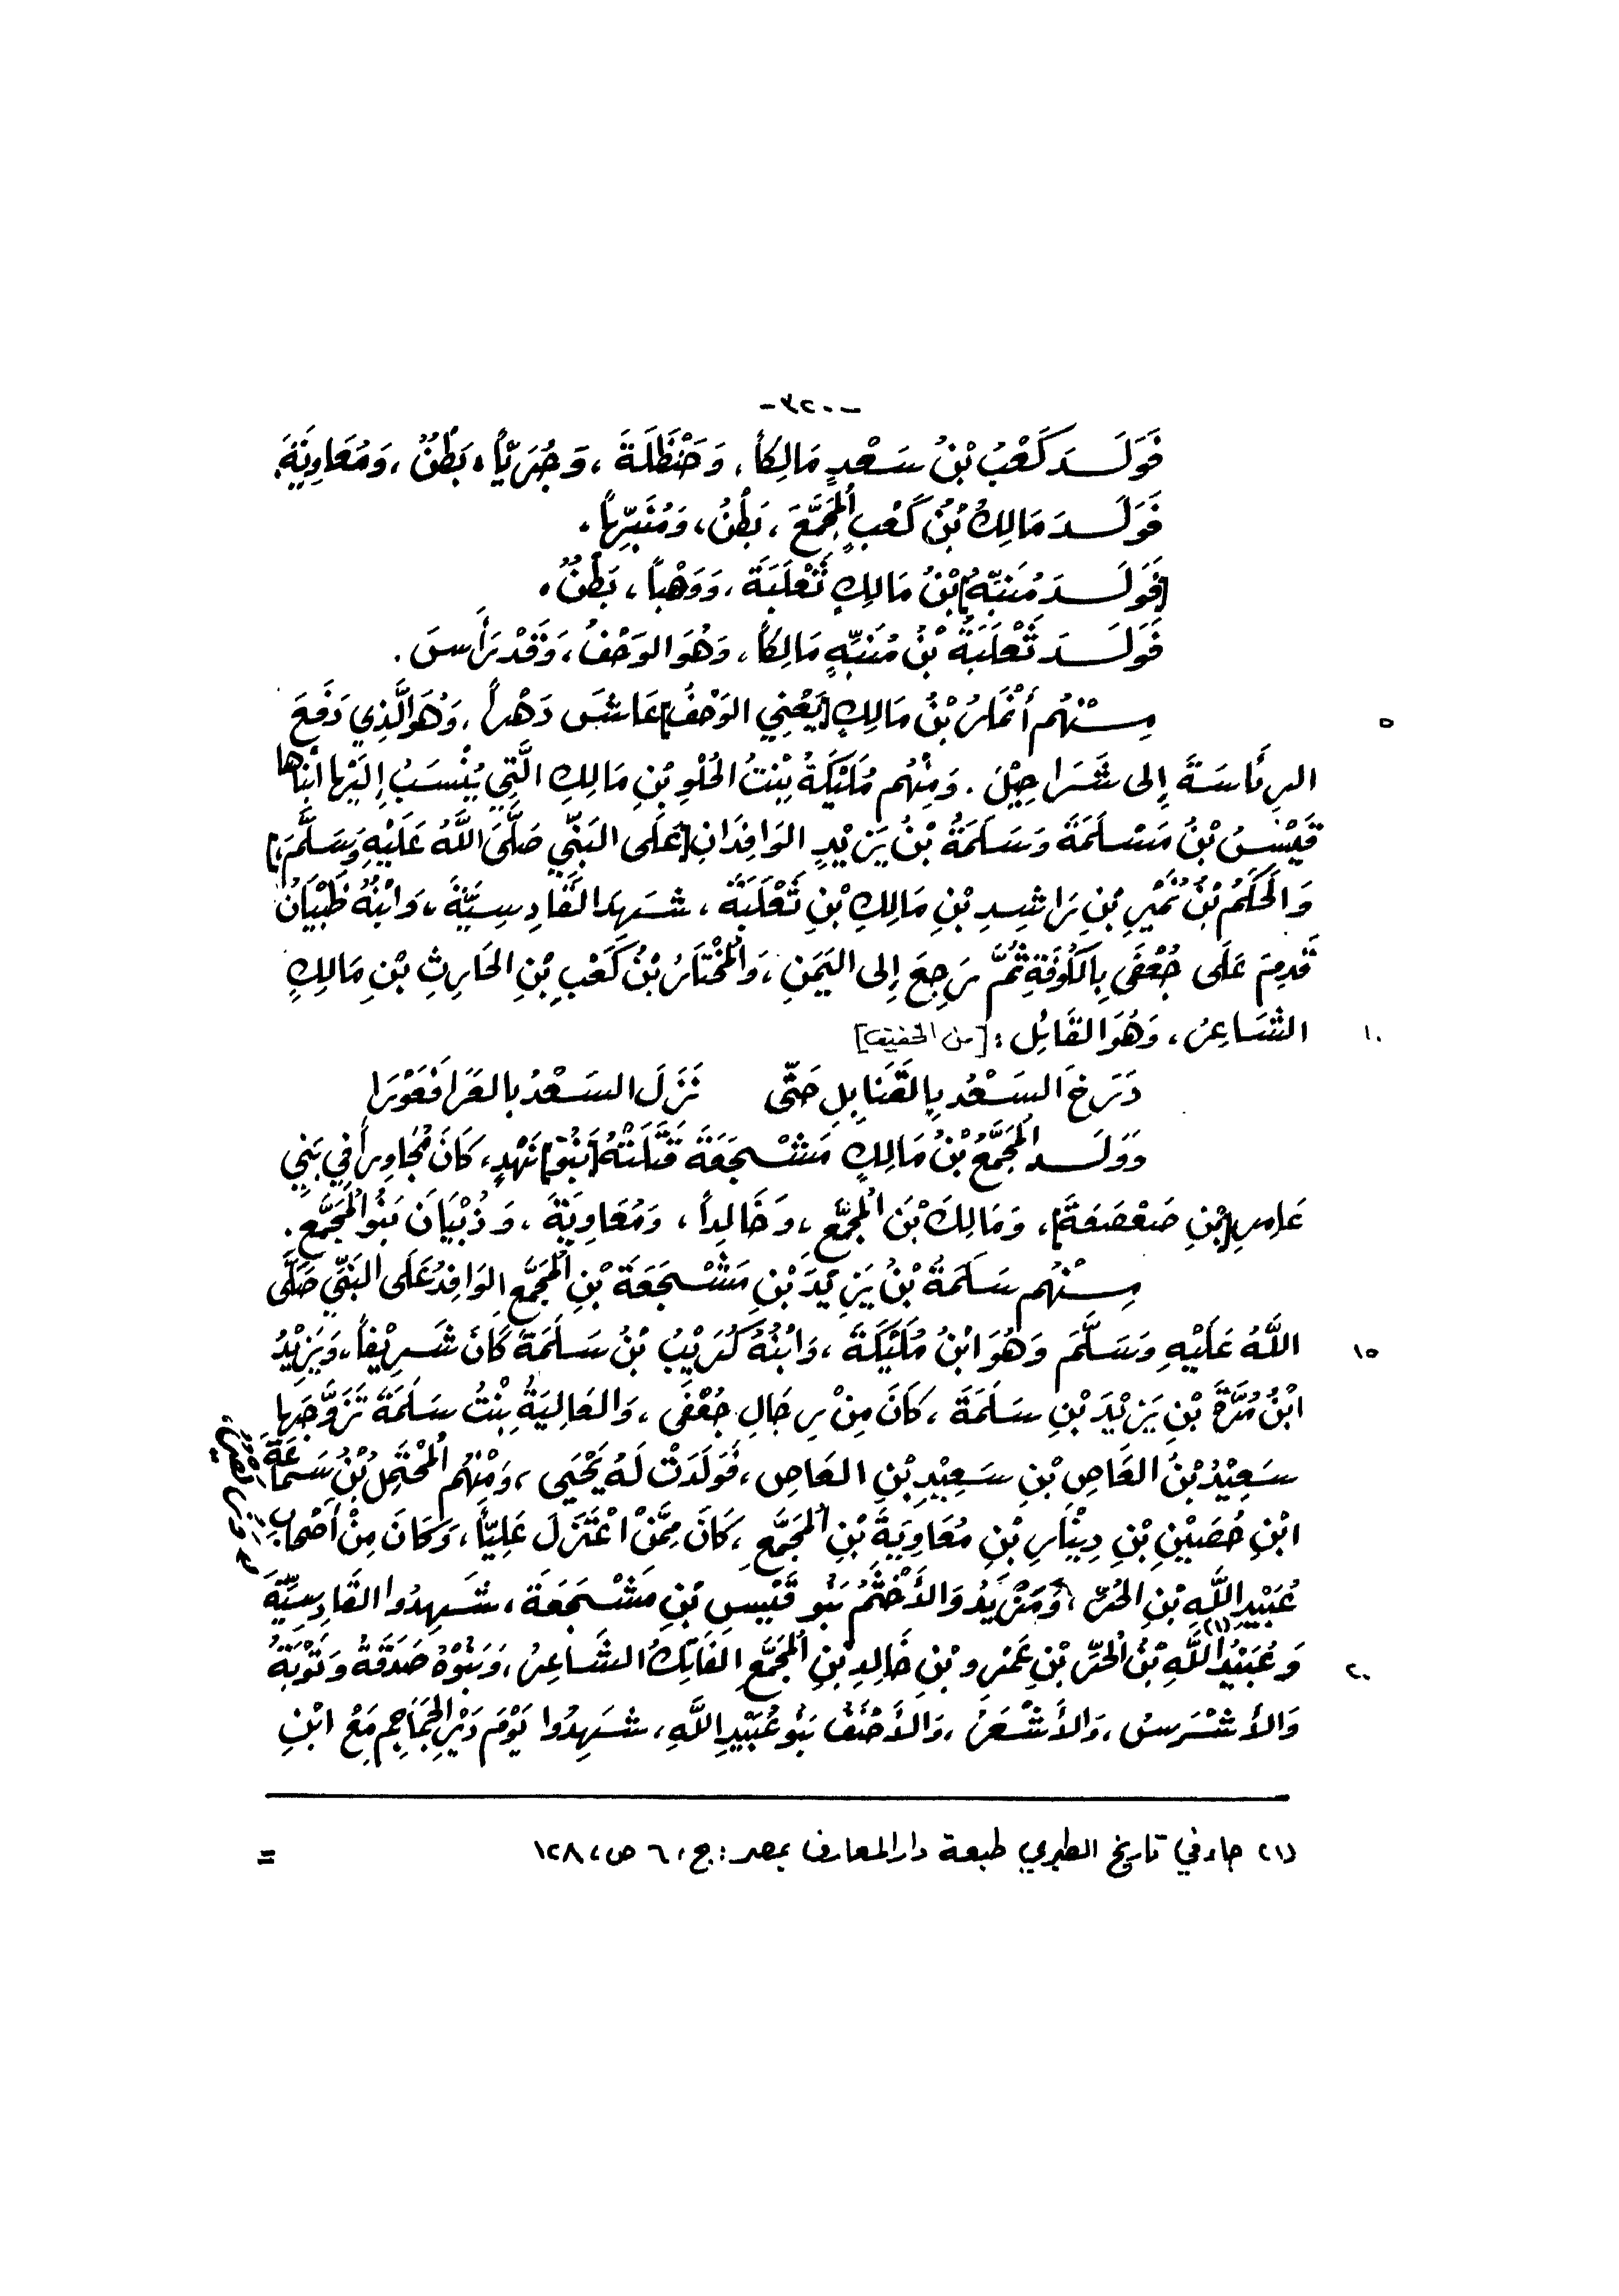 -٣٢٠-
فَوَلَـدَ كَعْبُ بْنُ سَعْدٍ مَالِكاً، وَحَنْظَلَةَ، وَجُرَيّاً، بَطْنٌ، وَمُعَاوِيَةَ.
فَوَلَـدَ مَالِكُ بْنُ كَعْبٍ الْمُجَمَّعَ، بَطْنٌ، وَمُنَبِّهاً.
[فَوَلَـدَ مُنَبِّهُ] بْنُ مَالِكٍ ثَعْلَبَةَ، وَوَهْباً، بَطْنٌ.
فَوَلَـدَ ثَعْلَبَةُ بْنُ مُنَبِّهٍ مَالِكاً، وَهُوَ الوَحْفُ، وَقَدْ رَأَسَ.
مِـنْهُم أَنْمَارُ بْنُ مَالِكٍ [يَعْنِي الوَحْفَ] عَاشَ دَهْراً، وَهُوَ الَّذِي دَفَعَ
الرِئَاسَةَ إِلى شَرَاحِيْلَ. وَمِنْهُم مُلَيْكَةُ بِنْتُ الحُلْوِ بْنِ مَالِكِ الَّتِي يُنْسَبُ إِلَيْها ابْناها
قَيْسُ بْنُ مَسْلَمَةَ وَسَلَمَةُ بْنُ يَزِيْدٍ الوَافِدَانِ [عَلَى النَبِّي صَلَّى اللَّهُ عَلَيْهِ وَسَلَّمَ،]
وَالحَكَمُ بْنُ نُمَيْرِ بْنِ رَاشِدِ بْنِ مَالِكِ بْنِ ثَعْلَبَةَ، شَهِدَ القَادِسِيَّةَ، وَابْنُهُ ظَبْيَانُ
قَدِمَ عَلَى جُعْفَى بِالكُوفَةِ ثُمَّ رَجِعَ إِلى اليَمَنِ، وَالْمُخْتَارُ بْنُ كَعْبِ بْنِ الحَارِثِ بْنِ مَالِكٍ
الشَاعِرُ، وَهُوَ القَائِلُ: [من الخفيف]
دَرَخَ السَعْدُ بِالقَنَابِلِ حَتّى نَزَلَ السَعْدُ بالعَرَا فَعَوْرَا
وَوَلَـدَ الْمُجَمَّعُ بْنُ مَالِكٍ مَشْجَعَةَ قَتَلَتْهُ [بَنُو] نَهْدٍ، كَانَ مُجَاوِراً فِي بَنِي
عَامِرِ [بْنِ صَعْصَعَةَ]، وَمَالِكَ بْنَ الْمُجَمَّعِ، وَخَالِداً، وَمُعَاوِيَةَ، وَذُبْيَانَ بَنُو الْمُجَمَّعِ.
مِـنْهُم سَلَمَةُ بْنُ يَزِيْدَ بْنِ مَشْجَعَةَ بْنِ الْمُجَمَّعِ الوَافِدُ عَلَى النَبِّي صَلَّى
اللَّهُ عَلَيْهِ وَسَلَّمَ وَهُوَ ابْنُ مُلَيْكَةَ، وَابْنُهُ كُرَيْبُ بْنُ سَلَمَةَ كَانَ شَرِيْفاً، وَيَزِيْدُ
ابْنُ مُرَّةَ بْنِ يَزِيْدَ بْنِ سَلَمَةَ، كَانَ مِنْ رِجَالِ جُعْفَى، وَالعَالِيَةُ بِنْتُ سَلَمَةَ تَزَوَّجَها
سَعِيْدُ بْنُ العَاصِ بْنِ سَعِيْدِ بْنِ العَاصِ، فَوَلَدَتْ لَهُ يَحْيَى، وَمِنْهُم الْمُحْتَمِلُ بْنُ سَمَاعَةَ
ابْنِ حُصَيْنِ بْنِ دِيْنَارِ بْنِ مُعَاوِيَةَ بْنِ الْمُجَمَّعِ، كَانَ مِمَّنْ اعْتَزَلَ عَلِيّاً، وَكَانَ مِنْ أَصْحَابِ
عُبَيْدِ اللَّهِ بْنِ الحُرِّ، وَمَزْيَدُ وَالأَخْثَمُ بَنُو قَيْسِ بْنِ مَشْجَعَةَ، شَهِدُوا القَادِسِيَّةَ
وَعُبَيْدُ اللَّهِ(١) بْنُ الحُرِّ بْنِ عَمْرِو بْنِ خَالِدِ بْنِ الْمُجَمَّعِ الفَاتِكُ الشَاعِرُ، وَبَنُوْهُ صَدَقَةُ وَتَوْبَةُ
وَالأَشْرَسُ، وَالأَشْعَرُ، وَالأَحْنَفُ بَنُو عُبَيْدِ اللَّهِ، شَهِدُوا يَوْمَ دَيْرِ الجَمَاجِمِ مَعَ ابْنِ
(١) جاء في تاريخ الطبري طبعة دار المعارف بمصر: ج، ٦ ص، ١٢٨
=
٥
١٠
١٥
٢٠